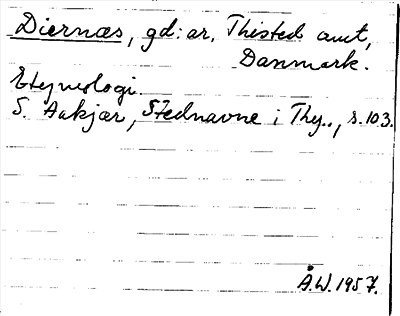 Diernæs, gd:ar, Thisted amt,
Danmark.
Etymologi.
S. Aakjær, Stednavne i Thy.., s.103.
Å.W. 1957.